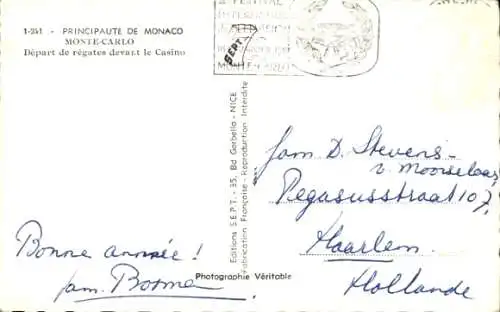 1-241 - PRINCIPAUTE DE MONACO
MONTE-CARLO
Départ de régates devant le Casino
FESTIVAL
INTERNATIONAL
Editions S.E.P.T. - 35, Bd Gorbella - NICE
Fabrication Française - Reproduction Interdite
SEPT
fam D. Stevens-
v. Moorselaar
Pegasusstraat 107
Haarlem
Hollande
Bonne année!
fam. Bosman
Photographie Véritable